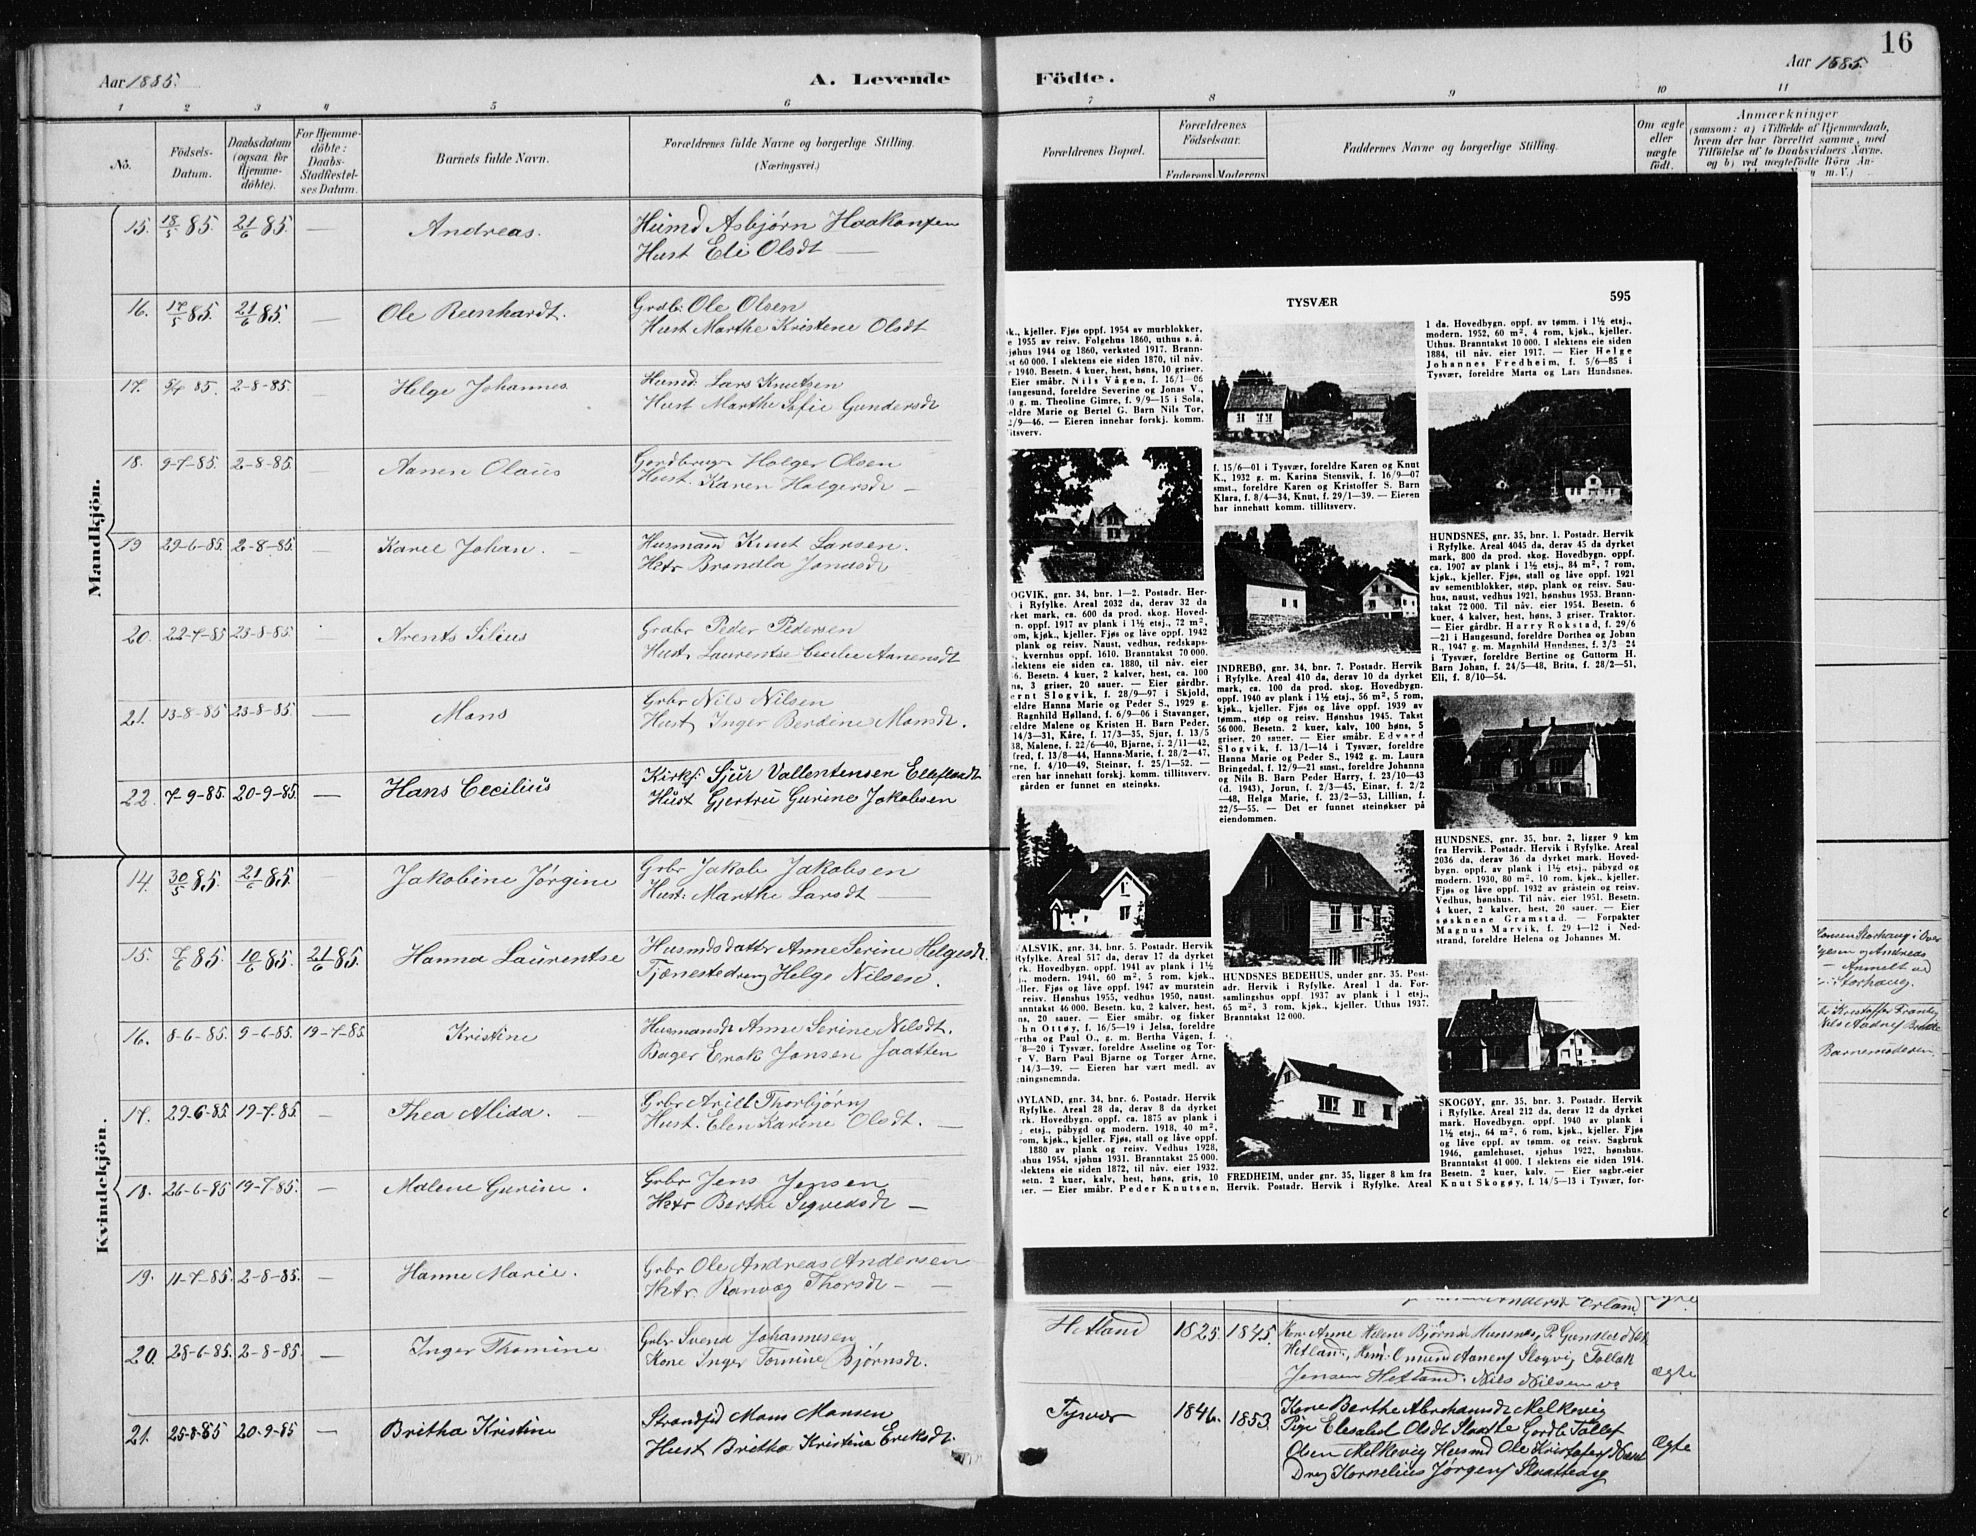 16
Aar 1885.
A. Levende
Födte.
Aar 1885.
1 2 3 4 5 6 7 8 9 10 11
No.
Födsels-
Datum.
Daabsdatum
(ogsaa for
Hjemme-
döbte).
For Hjemme-
döbte:
Daabs-
Stadfæstel-
ses Datum.
Barnets fulde Navn.
Forældrenes fulde Navne og borgerlige Stilling.
(Næringsvei.)
Forældrenes Bopæl.
Forældrenes
Födselsaar.
Faderens Moderens
Faddernes Navne og borgerlige Stilling.
Om ægte
eller
uægte
födt.
Anmærkninger
(saasom: a) i Tilfælde af Hjemmedaab,
hvem der har forrettet samme, med
Tilföielse af to Daabsvidners Navne,
og b) ved uægtefödte Börn An-
m. V.)
Mandkjön.
15. 18/5 85. 21/6 85. — Andreas. Husmd Asbjørn Haakonsen
Hust Eli Olsdt —
16. 17/5 85. 21/6 85. — Ole Reinhardt. Grdb: Ole Olsen
Hust Marthe Kristene Olsdt
17. 5/6 85. 2-8-85. — Helge Johannes Husmd: Lars Knutsen
Hust Marthe Sofie Gundersdt
18. 9-7-85. 2-8-85. — Aanen Olaus Gordbrug: Holger Olsen
Hust. Karen Holgersdt —
19 29-6-85. 2-8-85. — Karel Johan. Husmand Knut Larsen.
Hstr Brandla Jonasdt
20. 22-7-85 23-8-85. — Arents Silius Grdbr Peder Pedersen
Hust. Laurentse Cecilie Aanensdt
21. 13-8-85 23-8-85. — Mons Grbr Nils Nilsen
Hust Inger Berdine Monsdt.
22. 7-9-85. 20-9-85. — Hans Cecilius Kirks: Sjur Vallentensen
Hust Gjertru Gurine Jakobsen
Kvindekjön.
14. 30/5 85. 21/6 85. — Jakobine Jørgine Grbr Jakob Jakobsen
Hust: Marthe Larsdt —
15. 7/6 85. 10/6 85. 21/6 85. Hanna Laurentse Husmdsdatter Anne Serine Helgesdt.
Tjenestedreng Helge Nilsen.
16. 8-6-85. 9-6-85. 19-7-85. Kristine Husmandsdt Anne Serine Nilsdt.
Bager Enok Jansen Jaatten
17. 29-6-85. 19-7-85. — Thea Alida. Grbr Arill Thorbjørns
Hust. Elen Karine Olsdt. —
18. 26-6-85 19-7-85. — Malene Gurine. Grbr Jens Jensen
Hstr Berthe Sigvedsdt —
19. 11-7-85. 2-8-85. — Hanne Marie. Grbr Ole Andreas Andersen
Hstr. Ranvæg Thorsdt —
20. 28-6-85. 2-8-85. — Inger Thomine Grbr Svend Johannesen
Kone Inger Tomine Bjørnsdt.
21. 25-8-85 20-9-85 — Britha Kristine Strandsid Mons Monsen
Hust Britha Kristine Eriksdt.
TYSVÆR
595
k., kjeller. Fjøs oppf. 1954 av murblokker,
e 1955 av reisv. Folgehus 1860, uthus s. å.
jøhus 1944 og 1860, verksted 1917. Brann-
st 60 000. I slektens eie siden 1870, til nåv.
r 1940. Besetn. 4 kuer, hest, høns, 10 griser.
Eier småbr. Nils Vågen, f. 16/1—06
Haugesund, foreldre Severine og Jonas V.,
0 g. m. Theoline Gimre, f. 9/9—15 i Sola,
eldre Marie og Bertel G. Barn Nils Tor,
2/9—46. — Eieren innehar forskj. komm.
itsverv.
OGVIK, gnr. 34, bnr. 1—2. Postadr. Her-
i Ryfylke. Areal 2032 da, derav 32 da
rket mark, ca. 600 da prod. skog. Hoved-
n. oppf. 1917 av plank i 1½ etsj., 72 m²,
om, kjøk., kjeller. Fjøs og låve oppf. 1942
plank og reisv. Naust, vedhus, redskaps-
, kvernhus oppf. 1610. Branntakst 70 000.
slektens eie siden ca. 1880, til nåv. eier
6. Besetn. 4 kuer, 2 kalver, hest, ca. 100
ns, 3 griser, 20 sauer. — Eier gårdbr.
ernt Slogvik, f. 28/9—97 i Skjold,
eldre Hanna Marie og Peder S., 1929 g.
Ragnhild Hølland, f. 6/9—06 i Stavanger,
eldre Malene og Kristen H. Barn Peder,
14/3—31, Kåre, f. 17/3—35, Sjur, f. 13/5
38, Malene, f. 22/6—40, Bjarne, f. 2/11—42,
fred, f. 13/8—44, Hanna-Marie, f. 28/2—47,
rne, f. 4/10—49, Steinar, f. 25/1—52. —
eren har innehatt forskj. komm. tillitsverv.
gården er funnet en steinøks.
ALSVIK, gnr. 34, bnr. 5. Postadr. Hervik
Ryfylke. Areal 517 da, derav 17 da dyrket
rk. Hovedbygn. oppf. 1941 av plank i 1½
., modern. 1941, 60 m², 5 rom, kjøk.,
ller. Fjøs og låve oppf. 1947 av murstein
reisv. Hønshus 1955, vedhus 1950, naust.
anntakst 46 000. Besetn. ku, 2 kalver, hest,
ns, 20 sauer. — Eier småbr. og fisker
hn Ottøy, f. 16/5—19 i Jelsa, foreldre
ertha og Paul O., g. m. Bertha Vågen, f.
/8—20 i Tysvær, foreldre Asseline og Tor-
r V. Barn Paul Bjarne og Torger Arne,
14/3—39. — Eieren har vært medl. av
gningsnemnda.
ØYLAND, gnr. 34, bnr. 6. Postadr. Hervik
Ryfylke. Areal 28 da, derav 8 da dyrket
rk. Hovedbygn. oppf. ca. 1875 av plank i
etsj., påbygd og modern. 1918, 40 m²,
rom, kjøk., kjeller. Fjøs, stall og låve oppf.
1880 av plank og reisv. Vedhus 1928,
shus 1954, sjøhus 1931. Branntakst 25 000.
slektens eie siden 1872, til nåv. eier 1932.
setn. 2 kuer, kalv, hest, høns, gris, 10
uer. — Eier småbr. Peder Knutsen,
f. 15/6—01 i Tysvær, foreldre Karen og Knut
K., 1932 g. m. Karina Stensvik, f. 16/9—07
smst., foreldre Karen og Kristoffer S. Barn
Klara, f. 8/4—34, Knut, f. 29/1—39. — Eieren
har innehatt komm. tillitsverv.
INDREBØ, gnr. 34, bnr. 7. Postadr. Hervik
i Ryfylke. Areal 410 da, derav 10 da dyrket
mark, ca. 100 da prod. skog. Hovedbygn.
oppf. 1940 av plank i 1½ etsj., 56 m², 5 rom,
kjøk., kjeller. Fjøs og låve oppf. 1939 av
tømm., støp og reisv. Hønshus 1945. Takst
56 000. Besetn. 2 kuer, kalv, 100 høns, 5
griser, 20 sauer. — Eier småbr. Edvard
Slogvik, f. 13/1—14 i Tysvær, foreldre
Hanna Marie og Peder S., 1942 g. m. Laura
Bringedal, f. 12/9—21 smst., foreldre Johanna
og Nils B. Barn Peder Harry, f. 23/10—43
(d. 1943), Jorun, f. 2/3—45, Einar, f. 2/2
—48, Helga Marie, f. 23/2—53, Lillian, f.
22/5—55. — Det er funnet steinøkser på
eiendommen.
HUNDSNES BEDEHUS, under gnr. 35. Post-
adr. Hervik i Ryfylke. Areal 1 da. For-
samlingshus oppf. 1937 av plank i 1 etsj.,
65 m², 3 rom, kjøk., kjeller. Uthus 1937.
Branntakst 12 000.
FREDHEIM, under gnr. 35, ligger 8 km fra
Hervik. Postadr. Hervik i Ryfylke. Areal
1 da. Hovedbygn. oppf. av tømm. i 1½ etsj.,
modern. 1952, 60 m², 4 rom, kjøk., kjeller.
Uthus. Branntakst 10 000. I slektens eie siden
1884, til nåv. eier 1917. — Eier Helge
Johannes Fredheim, f. 5/6—85 i
Tysvær, foreldre Marta og Lars Hundsnes.
HUNDSNES, gnr. 35, bnr. 1. Postadr. Hervik
i Ryfylke. Areal 4045 da, derav 45 da dyrket
mark, 800 da prod. skog. Hovedbygn. oppf.
ca. 1907 av plank i 1½ etsj., 84 m², 7 rom,
kjøk., kjeller. Fjøs, stall og låve oppf. 1921
av sementblokker, støp, plank og reisv. Sau-
hus, naust, vedhus 1921, hønshus 1953. Brann-
takst 72 000. Til nåv. eier 1954. Besetn. 6
kuer, 4 kalver, hest, høns, 3 griser. Traktor.
— Eier gårdbr. Harry Rokstad, f. 29/6
—21 i Haugesund, foreldre Dorthea og Johan
R., 1947 g. m. Magnhild Hundsnes, f. 3/3—24
i Tysvær, foreldre Bertine og Guttorm H.
Barn Johan, f. 24/5—48, Brita, f. 28/2—51,
Eli, f. 8/10—54.
HUNDSNES, gnr. 35, bnr. 2, ligger 9 km
fra Hervik. Postadr. Hervik i Ryfylke. Areal
2036 da, derav 36 da dyrket mark. Hoved-
bygn. oppf. av plank i 1½ etsj., påbygd og
modern. 1930, 80 m², 10 rom, kjøk., kjeller.
Fjøs og låve oppf. 1932 av gråstein og reisv.
Vedhus, hønshus. Til nåv. eier 1951. Besetn.
4 kuer, 2 kalver, hest, 20 sauer. — Eier
søsknene Gramstad. — Forpakter
Magnus Marvik, f. 29 4—12 i Ned-
strand, foreldre Helena og Johannes M.
SKOGØY, gnr. 35, bnr. 3. Postadr. Hervik
i Ryfylke. Areal 212 da, derav 12 da dyrket
mark. Hovedbygn. oppf. 1940 av plank i
1½ etsj., 64 m², 6 rom, kjøk., kjeller. Fjøs
og låve oppf. av tømm. og reisv. Sagbruk
1946, gamlehuset, sjøhus 1922, hønshus.
Branntakst 41 000. I slektens eie siden 1914.
Besetn. 2 kuer, kalv. — Eier sagbr.eier
Knut Skogøy, f. 14/5—13 i Tysvær, for-
Hansen Storhaug i Over
Andreas
— Anmelt ved
Storhaug.
Kristoffer
Nils
Barnemoderen.
Hetland 1825 1845. Kone Anne Helene Bjørnsdt P. Gundla
Hetland, Aanens Slogvig Tollak
Jensen Hetland. Nils Nilsen
Ægte
Tysvær 1846. 1853. Kone Berthe Abrahamsdt Melkevig
Pige Elesabet Olsdt Slaatte Gordb. Tollef
Olsen Melkevig Husmd Ole Kristofers
Dreg Kornelius Jørgens Slaattevig
Ægte